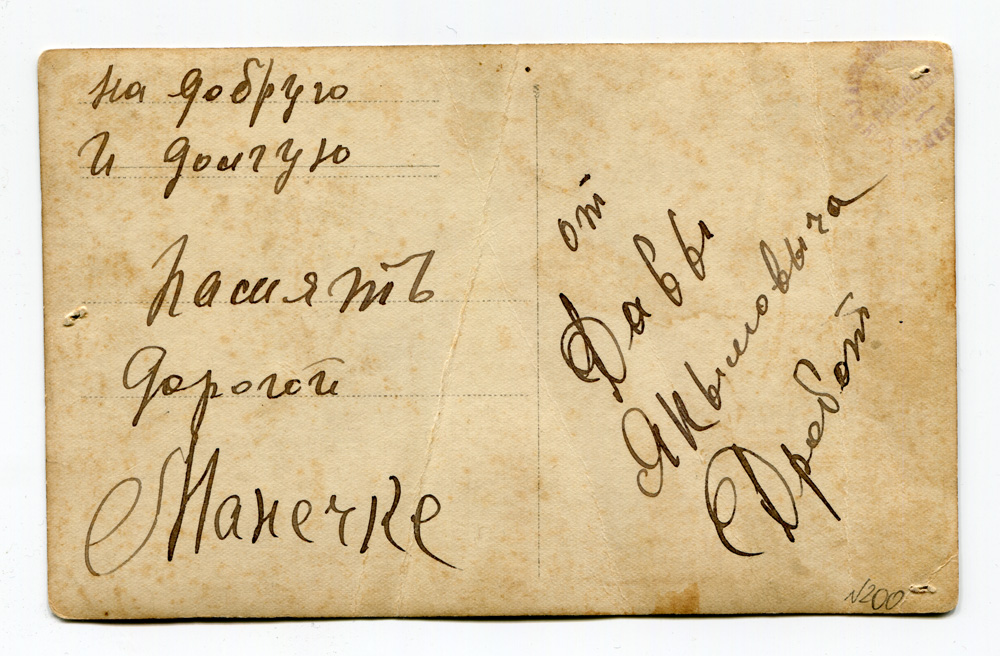 на добрую
и долгую
память
дорогой
Манечке
от
Давы
Якымовыча
Дробот
№200